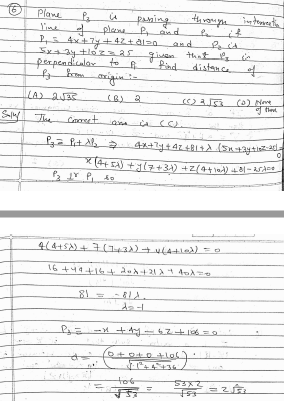 (6) Plane P3 is passing through intersection
line of plane P1 and P2 if
P1 = 4x+7y+4z+81=0 and P2 is
5x+3y+10z=25 given that P3 is
perpendicular to P1 find distance of
P3 from origin:-
(A) 2√35 (B) 2 (C) 2√53 (D) None of these
Soln) The correct ans is (C).
P3 = P1+λP2 ⇒ 4x+7y+4z+81+λ(5x+3y+10z-25)=0
x(4+5λ)+y(7+3λ)+z(4+10λ)+81-25λ=0
P3 ⊥r P1 so
4(4+5λ)+7(7+3λ)+4(4+10λ)=0
16+49+16+20λ+21λ+40λ=0
81 = -81λ
λ=-1
P3 = -x+4y-6z+106=0
d = (0+0+0+106)/√(1²+4²+36)
= 106/√53 = 53×2/√53 = 2√53